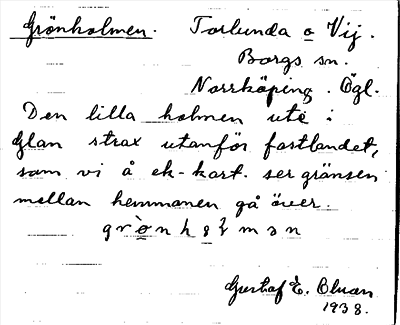 Grönholmen. Torlunda o Vij.
Borgs sn.
Norrköping. Ögl.
Den lilla holmen ute i
Glan strax utanför fastlandet,
som vi å ek-kart. ser gränsen
mellan hemmanen gå över.
Gustaf E.
1938.